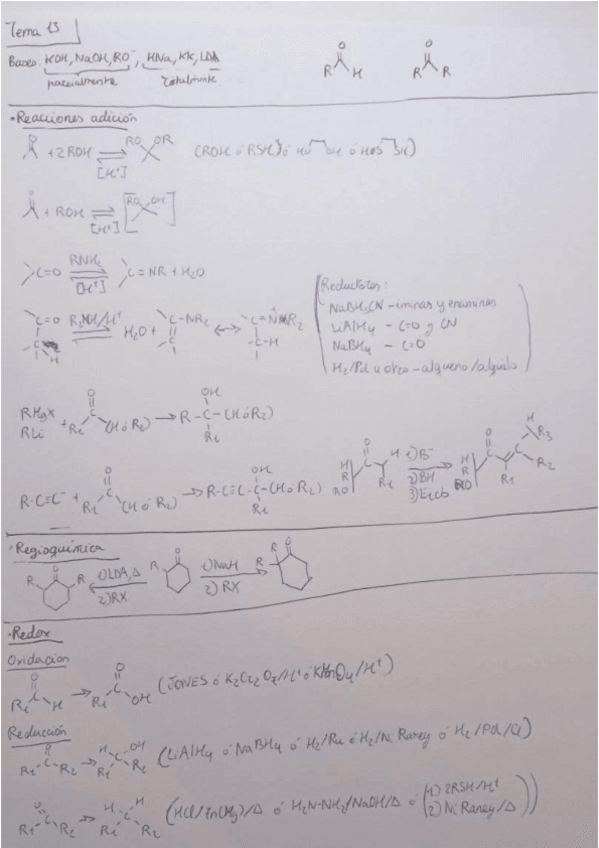 Tema 13
Bases: KOH, NaOH, RO⁻, HNa, KH, LDA
parcialmente totalmente
O O
R H R R
·Reacciones adición
O + 2ROH ⇌ [H⁺] RO OR (ROH ó RSH) ó HO OH ó HS SH)
O + ROH ⇌ [H⁺] [RO OH]
C=O RNH₂ ⇌ [H⁺] C=NR + H₂O
C=O C H R₂NH/H⁺ ⇌ H₂O + C-NR₂ C ↔ C=NR₂ C-H
Reductores:
NaBH₃CN - iminas y enaminas
LiAlH₄ - C=O y CN
NaBH₄ - C=O
H₂/Pd u otro - alqueno/alquilo
RMgX
RLi + R₁ C O (H ó R₂) → R-C-(H ó R₂) OH R₁
R-C≡C⁻ + R₁ C O (H ó R₂) → R-C≡C-C-(H ó R₂) OH R₁
H R RO O H R₁ 1) B⁻ 2) BH 3) → H R RO O R₁ R₂ R₃ H
·Regioquímica
R O R 1) LDA, Δ 2) RX ← R O 1) NaH 2) RX → R R O
·Redox
Oxidacion
R₁ C O H → R₁ C O OH (JONES ó K₂Cr₂O₇/H⁺ ó KMnO₄/H⁺)
Reducción
R₁ C O R₂ → H OH R₁ C R₂ (LiAlH₄ ó NaBH₄ ó H₂/Ru ó H₂/Ni Raney ó H₂/Pd/C)
R₁ C O R₂ → H H R₁ C R₂ (HCl/Zn(Hg)/Δ ó H₂N-NH₂/NaOH/Δ ó (1) 2RSH/H⁺ 2) Ni Raney/Δ))